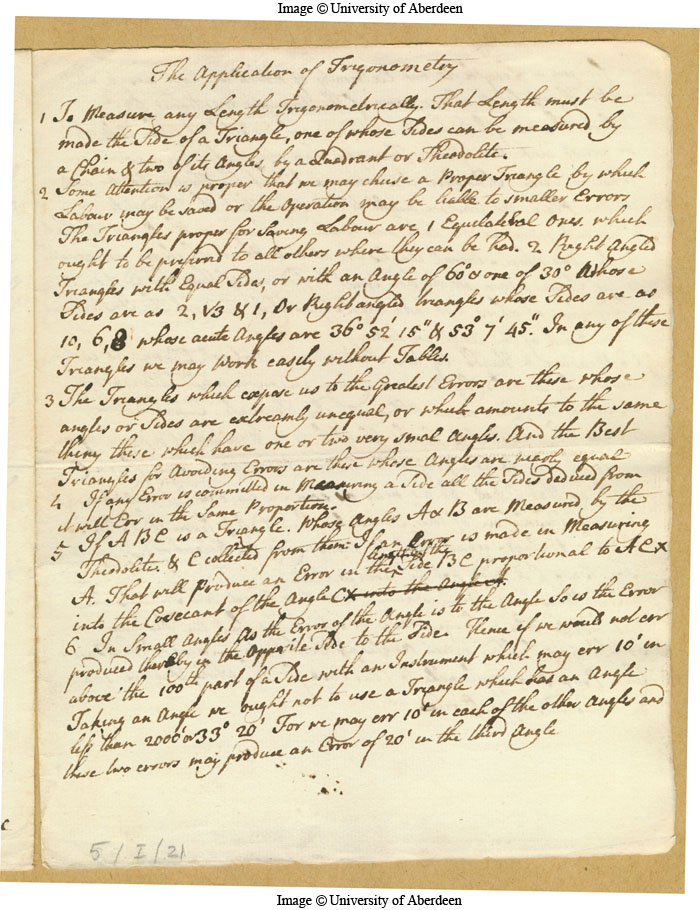 Image © University of Aberdeen
The Application of Trigonometry
1 To Measure any Length Trigonometrically. That Length must be
made the Side of a Triangle, one of whose Sides can be measured by
a Chain & two of its Angles by a Quadrant or Theodolite.
2 Some Attention is proper that we may chuse a Proper Triangle by which
Labour may be saved or the Operation may be liable to smaller Errors
The Triangles proper for saving Labour are 1 Equilateral Ones. which
ought to be preferred to all others where they can be had. 2 Right Angled
Triangles with Equal Sides, or with an Angle of 60° & one of 30° Whose
Sides are as 2, √3 & 1, Or Right angled triangles whose Sides are as
10, 6, 8 whose acute Angles are 36° 52' 15" & 53° 7' 45". In any of these
Triangles we may work easily without Tables.
3 The Triangles which expose us to the Greatest Errors are these whose
angles or Sides are extreamly unequal, or which amounts to the same
thing these which have one or two very smal Angles. And the Best
Triangles for Avoiding Errors are these whose Angles are nearly equal
4 If any Error is committed in Measuring a Side all the Sides deduced from
it will Err in the Same Proportion.
5 If A B C is a Triangle. Whose Angles A & B are Measured by the
Theodolite & C collected from them. If an Error is made in Measuring
A. That will produce an Error in the Side BC proportional to AC x
into the Cosecant of the Angle C x into the Angle
6 In Small Angles As the Error of the Angle is to the Angle So is the Error
produced thereby in the Opposite Side to the Side. Hence if we would not err
above the 100th part of a Side with an Instrument which may err 10' in
Taking an Angle we ought not to use a Triangle which has an Angle
less than 2000' or 33° 20' For we may err 10' in each of the other Angles and
these two errors may produce an Error of 20' in the third Angle
5/I/21
Image © University of Aberdeen